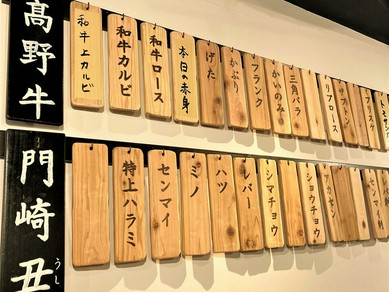 高野牛
和牛上カルビ
和牛カルビ
和牛ロース
本日の赤身
げた
かぶり
フランク
かいのみ
三角バラ
リブロース
門崎丑
うし
特上ハラミ
センマイ
ミノ
ハツ
レバー
シマチョウ
ショウチョウ
アカセン